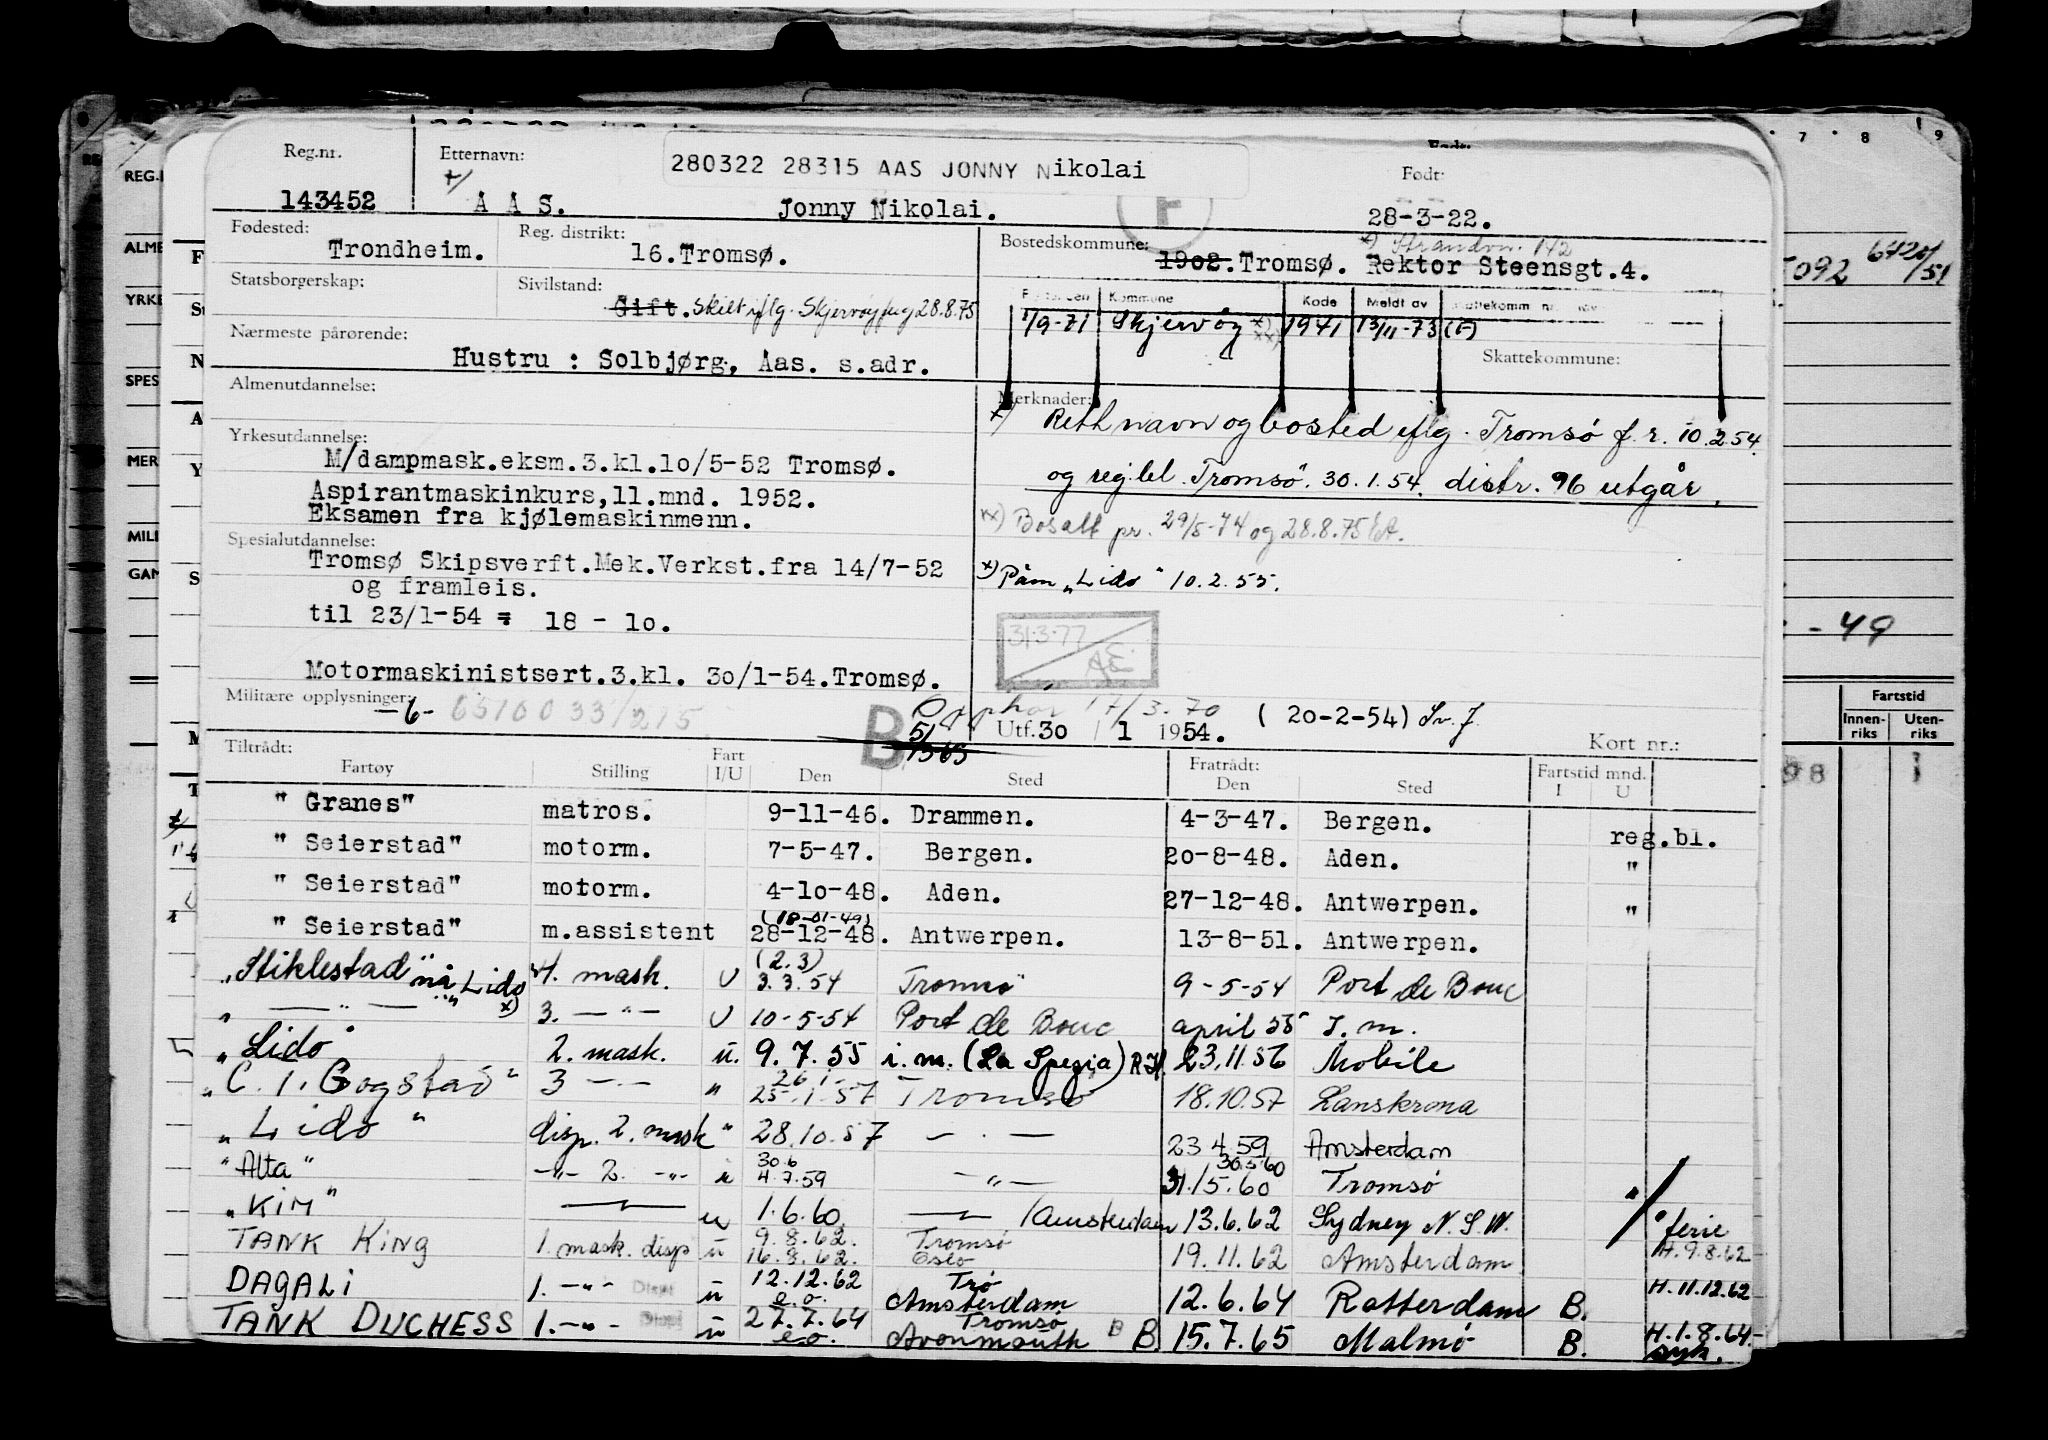 Reg.nr. Etternavn: 280322 28315 AAS JONNY Nikolai Født:
143452 A A S. Jonny Nikolai. 28-3-22.
Fødested: Trondheim. Reg. distrikt: 16.Tromsø. Bostedskommune: 1902.Tromsø. Rektor Steensgt.4.
x) Strandvn. 142
Statsborgerskap: Sivilstand: Gift. Skilt iflg. Skjervøy f.reg 28.8.75
Kommune Kode Meldt av
1/9-71 Skjervøy x) xx) 1941 13/11-73 (F)
Nærmeste pårørende: Hustru : Solbjørg, Aas. s.adr. Skattekommune:
Almenutdannelse: Merknader:
x) Rett navn og bosted iflg. Tromsø f.r. 10.2.54.
og reg.bl. Tromsø. 30.1.54. distr. 96 utgår.
xx) Bosatt pr. 29/5-74 og 28.8.75
x) Påm „Lido" 10.2.55.
Yrkesutdannelse:
M/dampmask.eksm.3.kl.10/5-52 Tromsø.
Aspirantmaskinkurs,11.mnd. 1952.
Eksamen fra kjølemaskinmenn.
Spesialutdannelse:
Tromsø Skipsverft.Mek.Verkst.fra 14/7-52
og framleis.
til 23/1-54 = 18 - 10.
31.3.77
AE
Motormaskinistsert.3.kl. 30/1-54.Tromsø.
Militære opplysninger: -6- 6510033/215
Opphør 17/3.70
B Utf.30 / 1 1954. (20-2-54) Sv.J.
Kort nr.:
Tiltrådt: Fratrådt:
Fartøy Stilling Fart I/U Den Sted Den Sted Fartstid mnd. I U
" Granes" matros. 9-11-46. Drammen. 4-3-47. Bergen. reg.bl.
" Seierstad" motorm. 7-5-47. Bergen. 20-8-48. Aden. "
" Seierstad" motorm. 4-10-48. Aden. 27-12-48. Antwerpen. "
" Seierstad" m.assistent (18-01-49) 28-12-48. Antwerpen. 13-8-51. Antwerpen.
„Stiklestad" nå „Lido" x) 4. mask. U (2.3) 3.3.54 Tromsø 9-5-54 Port de Bouc
„ — " — 3. — " — U 10-5-54 Port de Bouc april 55 I.m.
„Lido" 2. mask. u. 9.7.55 i.m. (La Spezia) R.H. 23.11.56 Mobile
„C.I. Gogstad" 3 — " — " 26.1- 25.1.57 Tromsø 18.10.57 Lanskrona
„Lido" disp. 2. mask " 28.10.57 — . — 23 4.59 Amsterdam
"Alta" — " — 2. — " — u 30.6 4.7.59 — " — 30.5.60 31./5.60 Tromsø
„KIM" — " — u 1.6.60. — " — /Amsterdam 13.6.62 Sydney N.S.W. ferie
TANK KING 1. mask. disp u 9.8.62. 16.8.62. Tromsø Oslo 19.11.62 Amsterdam H.9.8.62
DAGALI 1. — " — Disp u 12.12.62 e.o. Trø Amsterdam 12.6.64 Rotterdam B. H.11.12.62
TANK DUCHESS 1. — " — Disp u 27.7.64 e.o. Tromsø Avonmouth B B. 15.7.65 Malmø B. H.1.8.64- syk.
5092 6420/51
- 49
Fartstid
Innenriks Utenriks
98 1
7 8 9